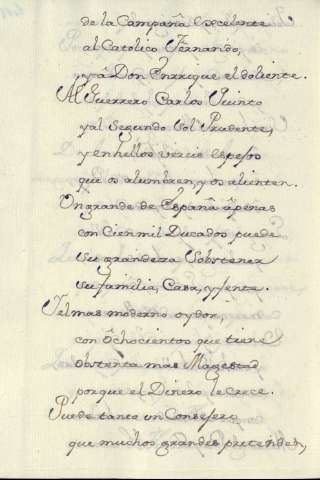 de la Campaña excelente
al Catolico Fernando,
y à Don Enrrique el doliente.
Al Guerrero Carlos Quinto
y al Segundo Sol Prudente,
y en hellos vereis espejos
que os alumbren, y os alienten.
Un grande de España apenas
con Cien mil Ducados puede
su grandeza Sobstener
su familia, Casa, y Jente.
Y el mas moderno oydor,
con Ochocientos que tiene
obstenta mas Magestad
porque el Dinero le crece.
Puede tanto un Consejero
que muchos grandes pretenden,